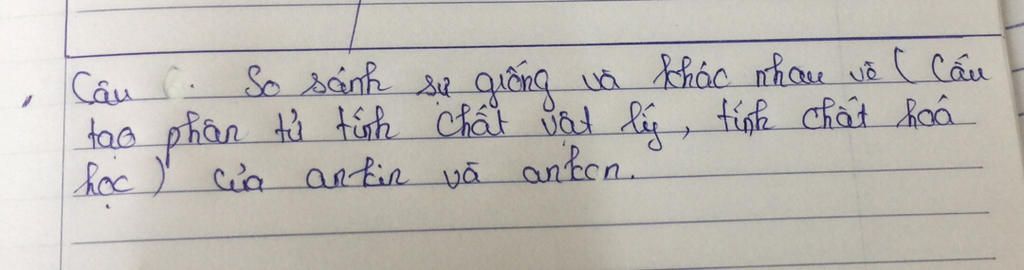 Câu . So sánh sự giống và khác nhau về ( Cấu
tạo phân tử tính chất vật lý, tính chất hoá
học) của ankin và anken.